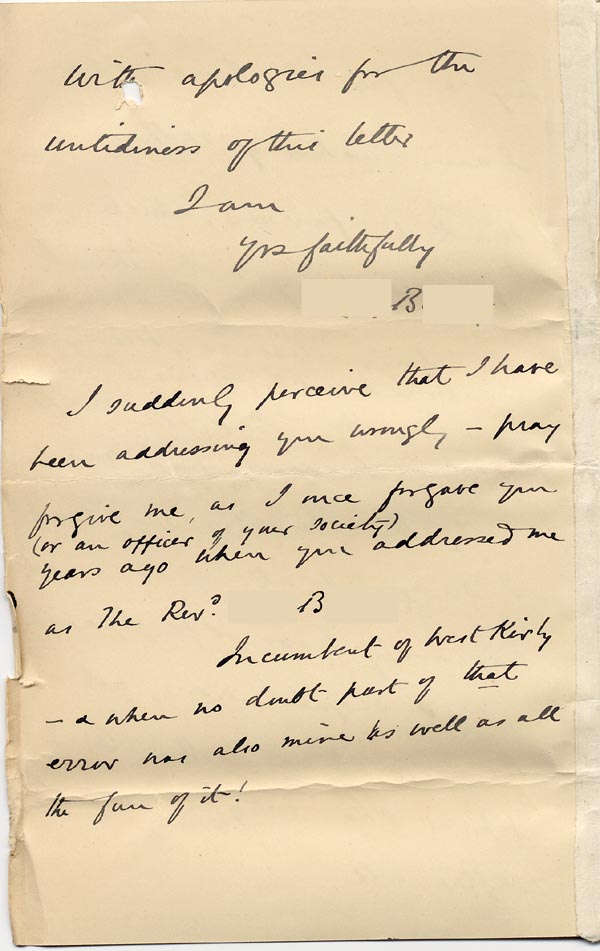 With apologies for the
untidiness of this letter
I am
yrs faithfully
B
I suddenly perceive that I have
been addressing you wrongly – pray
forgive me, as I once forgave you
(or an officer of your Society)
years ago when you addressed me
as The Revd.
B
Incumbent of West Kirby
– & when no doubt part of that
error was also mine as well as all
the fun of it!